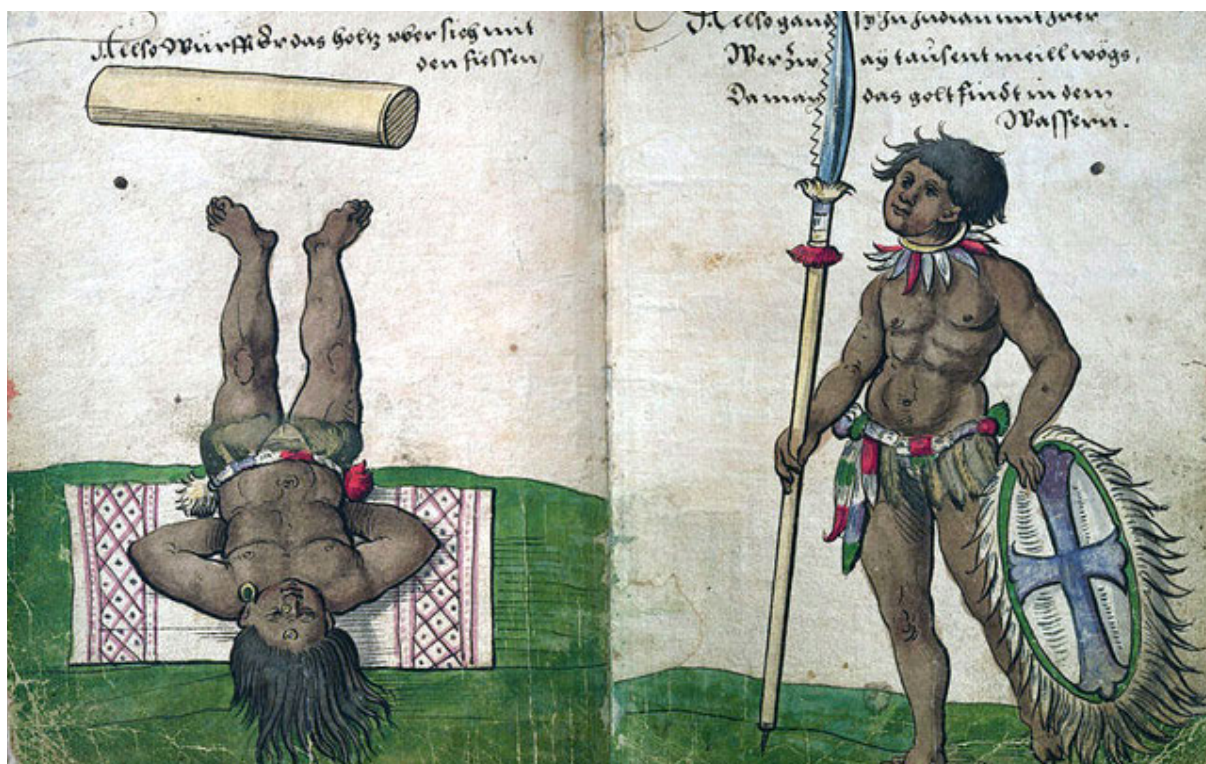 Allso Würfft Er das holtz vber sich mit
den fiessen,
Allso gand sy Jn Jndian mit Jrer
Wer zway tausent meill wögs,
Da man das golt findt in dem
Wassern.